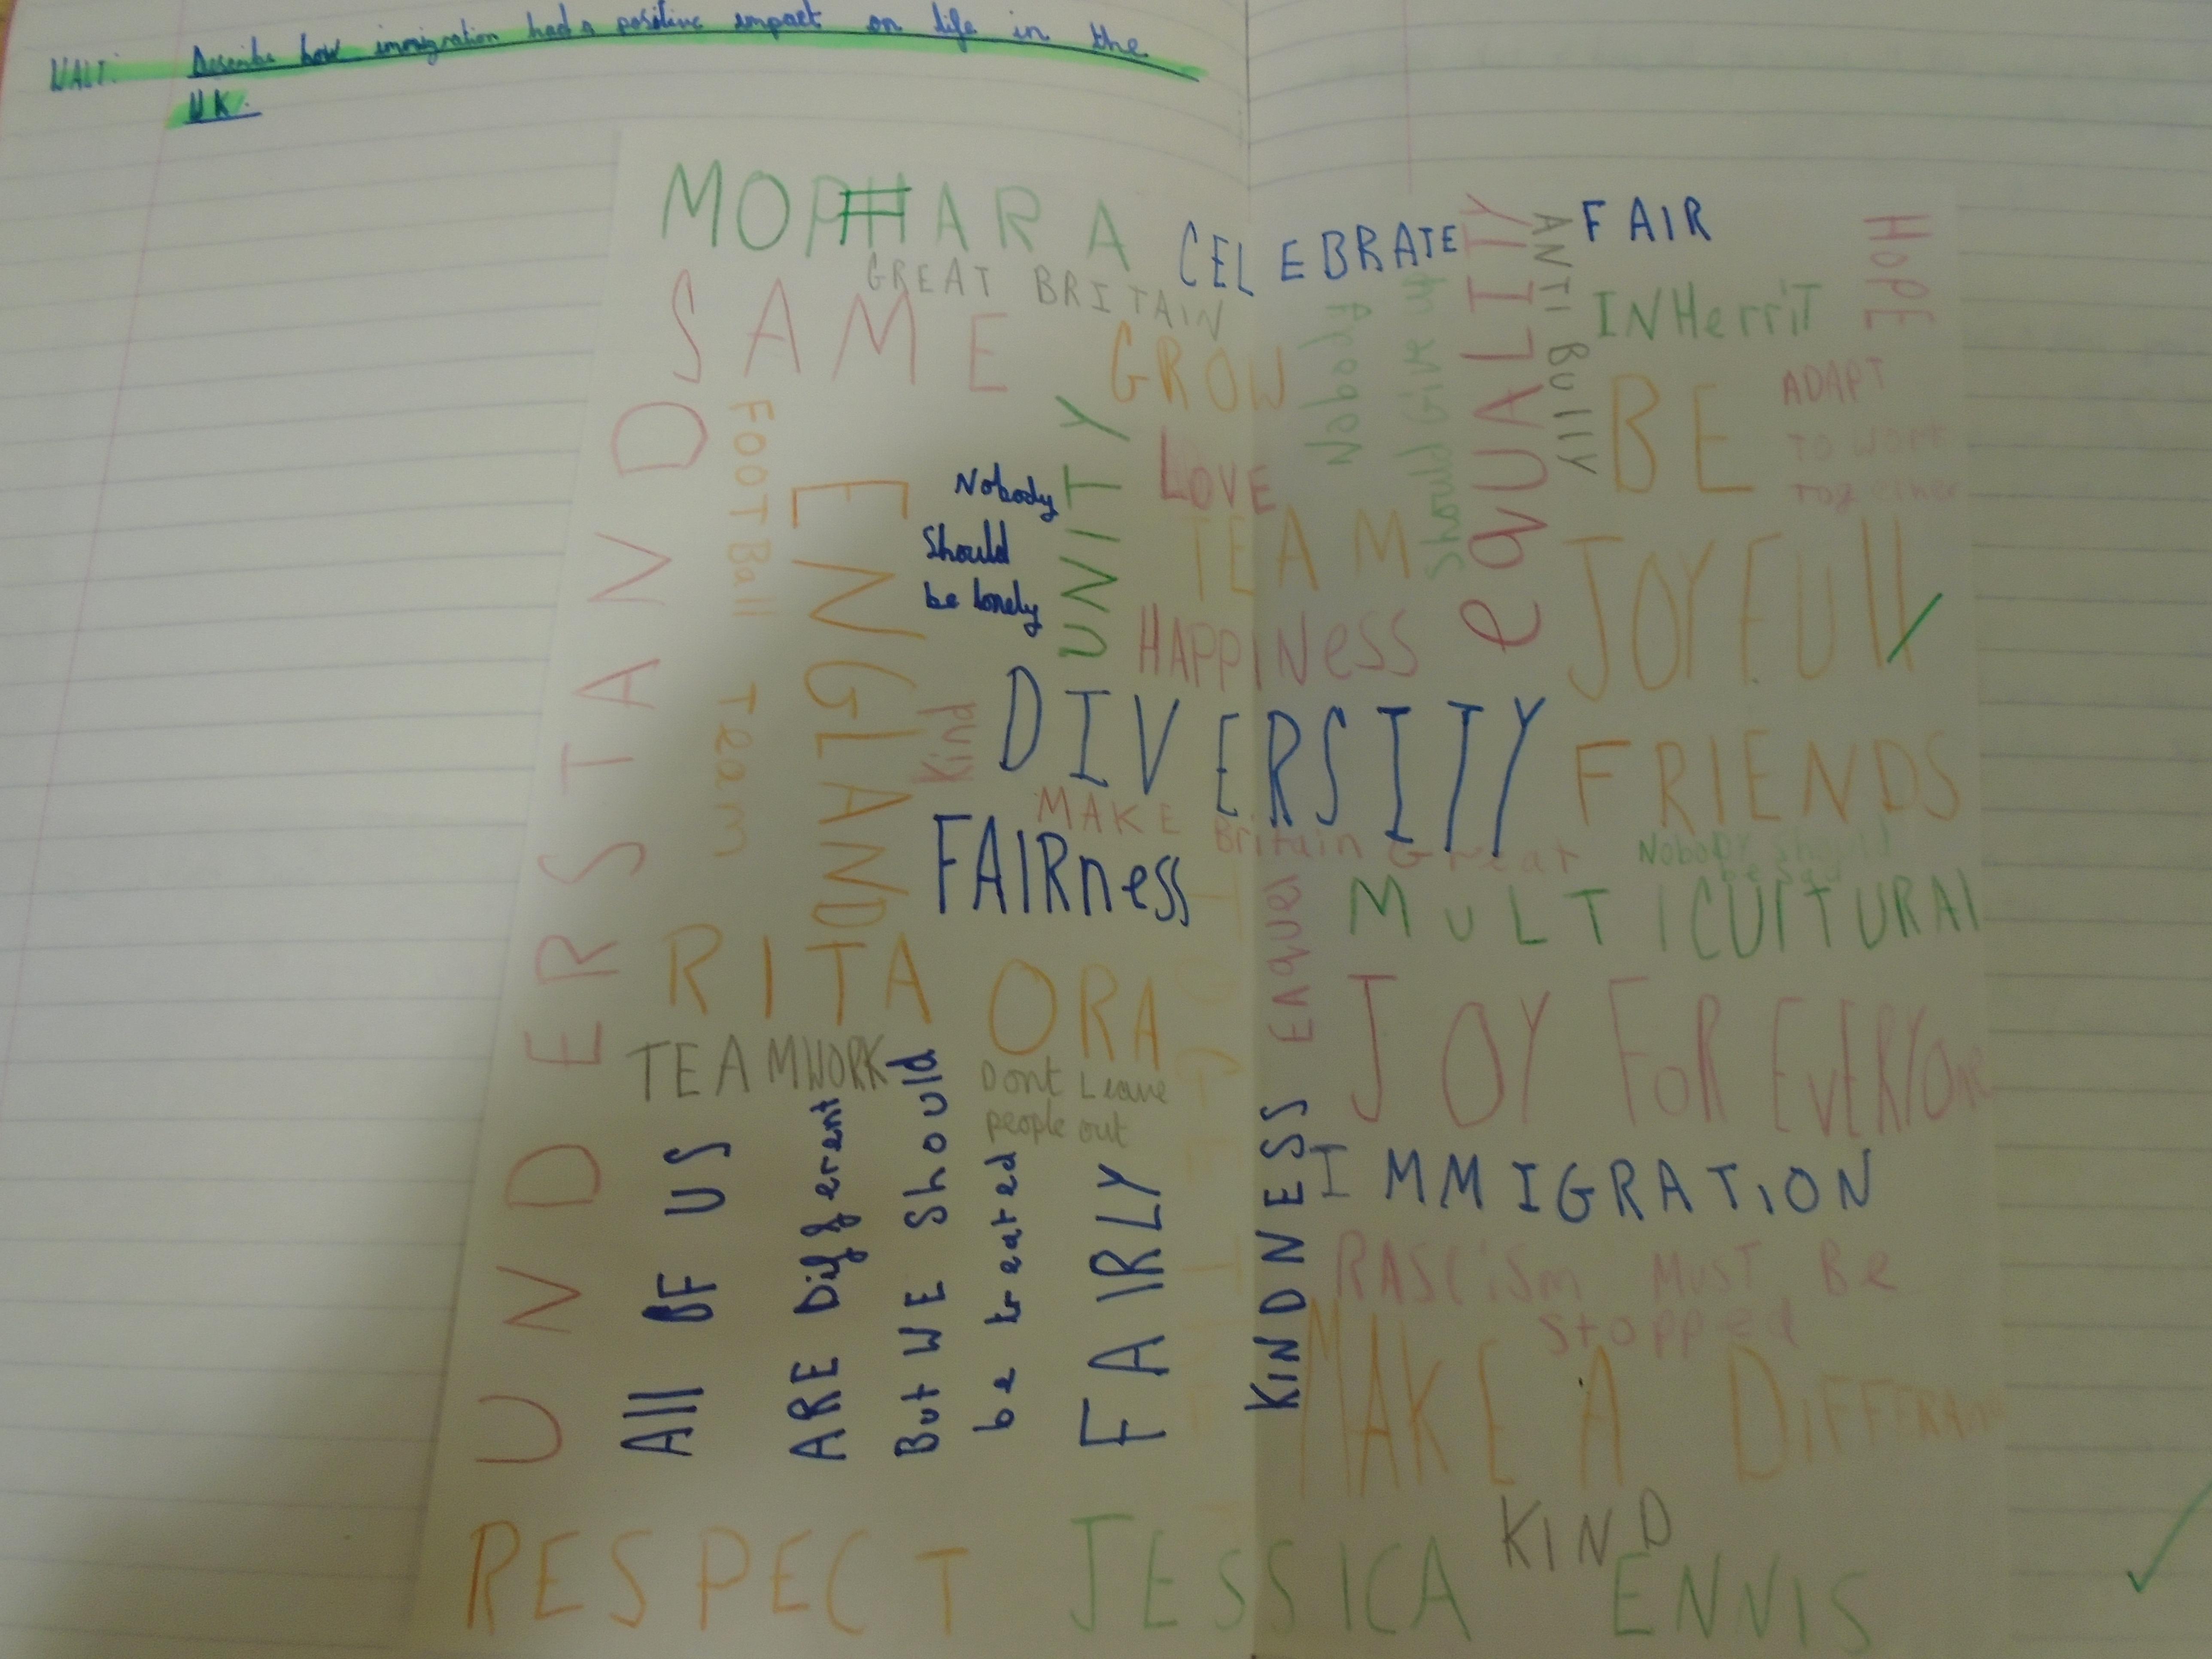 WALT: Describe how immigration had a positive impact on life in the
UK.
MO FARA
CELEBRATE
FAIR
HOPE
GREAT BRITAIN
SAME
GROW
EQUALITY
ANTI BUllY
INHerriT
BE
ADAPT
TO WORK
TOgether
UNDERSTAND
FOOTBall Team
ENGLAND
Nobody
Should
be lonely
UNITY
LOVE
TEAM
HAPPINeSS
Nobody
JOYFUll
Kind
DIVERSITY
FRIENDS
MAKE Britain Great
FAIRness
Nobody should
be sad
MULTICUlTURAl
EAquel
RITA ORA
JOY FOR EVERYONE
TEAMWORK
Dont Leave
people out
All OF US
ARE Different
But WE Should
be treated
FAIRLY
TOGETHER
KINDNESS
IMMIGRATION
RAScism MUST Be
Stopped
MAKE A
KIND
RESPECT
JESSICA ENNIS